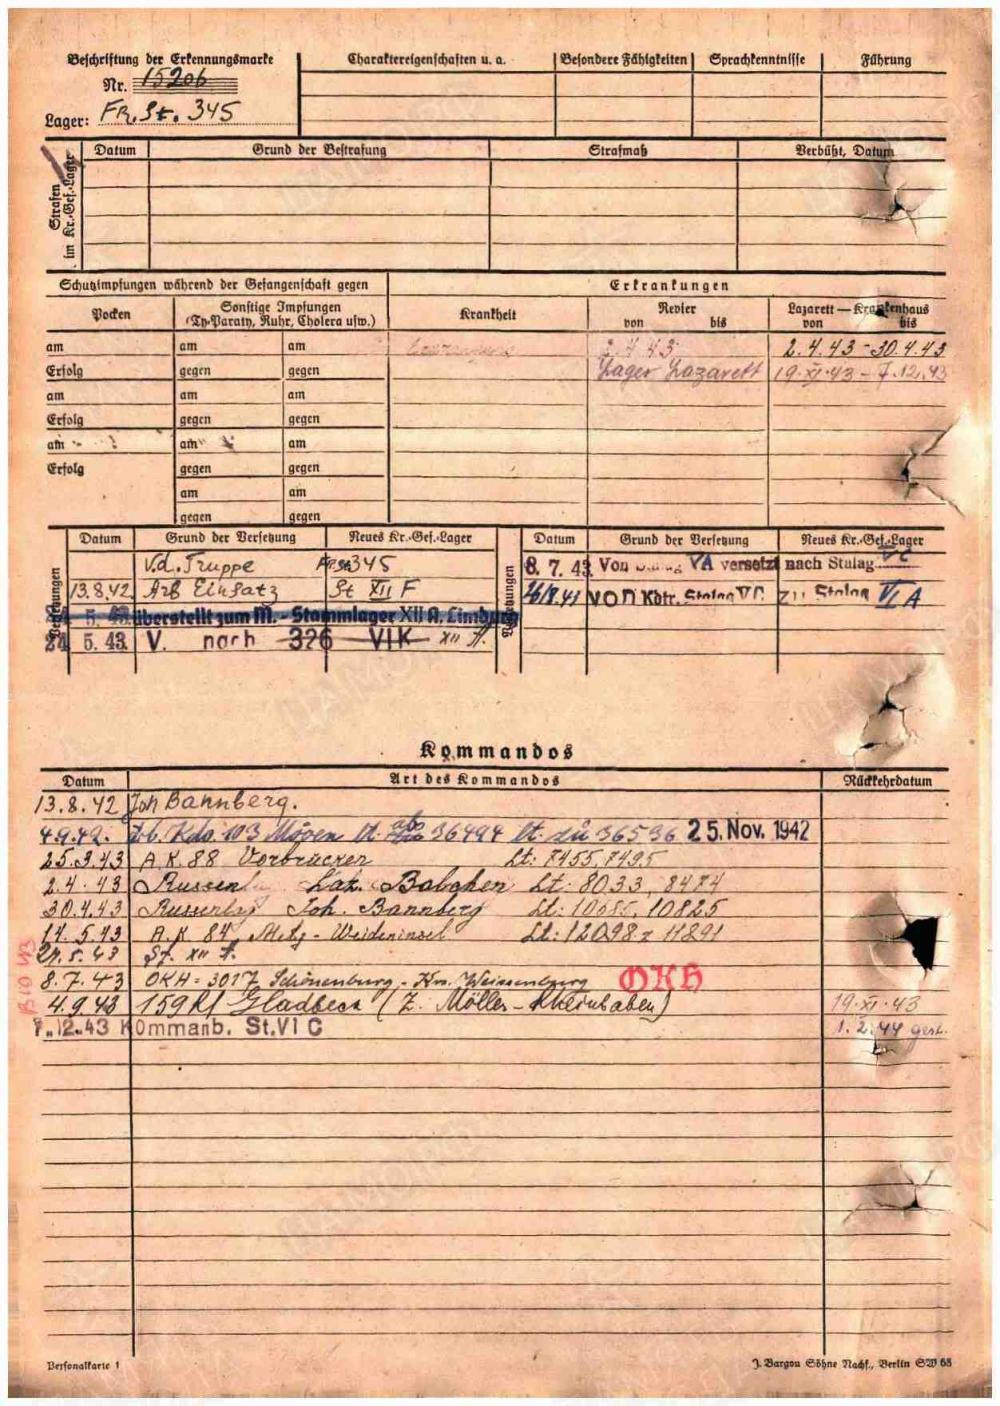 Beschriftung der Erkennungsmarke
Nr. 15206
Lager: FR. St. 345
Charaktereigenschaften u. a.
Besondere Fähigkeiten
Sprachkenntnisse
Führung
Strafen im Kr.-Gef.-Lager
Datum
Grund der Bestrafung
Strafmaß
Verbüßt, Datum
Schutzimpfungen während der Gefangenschaft gegen
Erkrankungen
Pocken
Sonstige Impfungen
(Ty-Paraty, Ruhr, Cholera usw.)
Krankheit
Revier
von bis
Lazarett — Krankenhaus
von bis
am am am 2.4.43 2.4.43 - 30.4.43
Erfolg gegen gegen Lager Lazarett 19.XI.43 - 7.12.43
am am am
Erfolg gegen gegen
am am am
Erfolg gegen gegen
am am
gegen gegen
Versetzungen
Datum Grund der Versetzung Neues Kr.-Gef.-Lager
V.d. Truppe 345
13.8.42 Arb Einsatz St XII F
5. 43. überstellt zum M.- Stammlager XII A. Limburg
24 5. 43. V. nach 326 VI K XII A.
Versetzungen
Datum Grund der Versetzung Neues Kr.-Gef.-Lager
8. 7. 43. Von VA versetzt nach Stalag
von Kdtr. Stalag zu Stalag VI A
Kommandos
Datum Art des Kommandos Rückkehrdatum
13.8.42 Joh Bannberg.
4.9.42. Kdo. 103 ab 36494 36536 25. Nov. 1942
25.3.43 A.K. 88 Vorbrücken Lt: 7455, 7495
2.4.43 Laz. Lt: 8033, 8474
30.4.43 Russenlag Joh. Bannberg Lt: 10685, 10825
14.5.43 A.K 84 Metz - Weideninsel Lt: 12098 11891
24.5.43 St. XII A.
8.7.43 OKH = 3017 Schönenburg - Krs. Weissenburg OKH
4.9.43 159 Rf Gladbeck (Z. Möller - Rheinbaben) 19.XI.43
7.12.43 Kommanb. St. VI C 1.2.44 gest.
Personalkarte 1
J. Bargou Söhne Nachf., Berlin SW 68